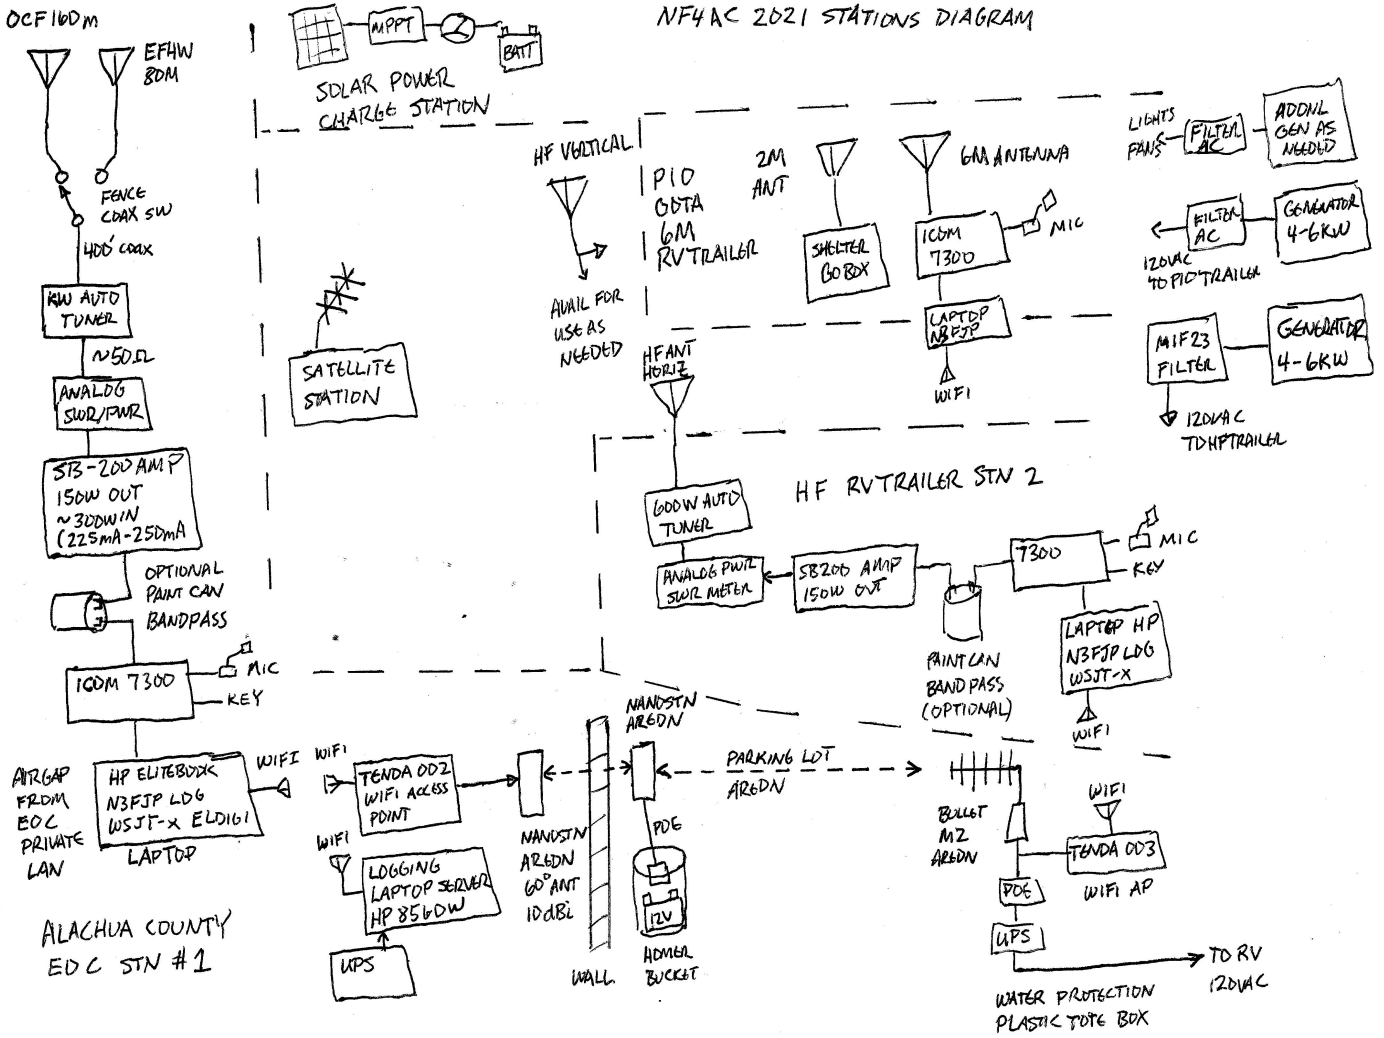 NF4AC 2021 STATIONS DIAGRAM
OCF160m
EFHW
80M
FENCE
COAX SW
400' COAX
KW AUTO
TUNER
~50Ω
ANALOG
SWR/PWR
SB-200 AMP
150W OUT
~300W IN
(225mA-250mA
OPTIONAL
PAINT CAN
BANDPASS
ICOM 7300
MIC
KEY
AIRGAP
FROM
EOC
PRIVATE
LAN
HP ELITEBOOK
N3FJP LOG
WSJT-X FLDIGI
LAPTOP
WIFI
ALACHUA COUNTY
EOC STN #1
MPPT
BATT
SOLAR POWER
CHARGE STATION
SATELLITE
STATION
HF VERTICAL
AVAIL FOR
USE AS
NEEDED
PIO
GOTA
6M
RVTRAILER
2M
ANT
SHELTER
GO BOX
6M ANTENNA
ICOM
7300
MIC
LAPTOP
N3FJP
WIFI
LIGHTS
FANS
FILTER
AC
ADDNL
GEN AS
NEEDED
FILTER
AC
GENERATOR
4-6KW
120VAC
TO PIO TRAILER
MIF23
FILTER
GENERATOR
4-6KW
120VAC
TO HF TRAILER
HF ANT
HORIZ
HF RVTRAILER STN 2
600W AUTO
TUNER
ANALOG PWR
SWR METER
SB200 AMP
150W OUT
PAINTCAN
BANDPASS
(OPTIONAL)
7300
MIC
KEY
LAPTOP HP
N3FJP LOG
WSJT-X
WIFI
WIFI
TENDA 002
WIFI ACCESS
POINT
WIFI
LOGGING
LAPTOP SERVER
HP 8560W
UPS
NANOSTN
AREDN
60° ANT
10dBi
WALL
NANOSTN
AREDN
POE
12V
HOMER
BUCKET
PARKING LOT
AREDN
BULLET
M2
AREDN
WIFI
TENDA 003
WIFI AP
POE
UPS
TO RV
120VAC
WATER PROTECTION
PLASTIC TOTE BOX